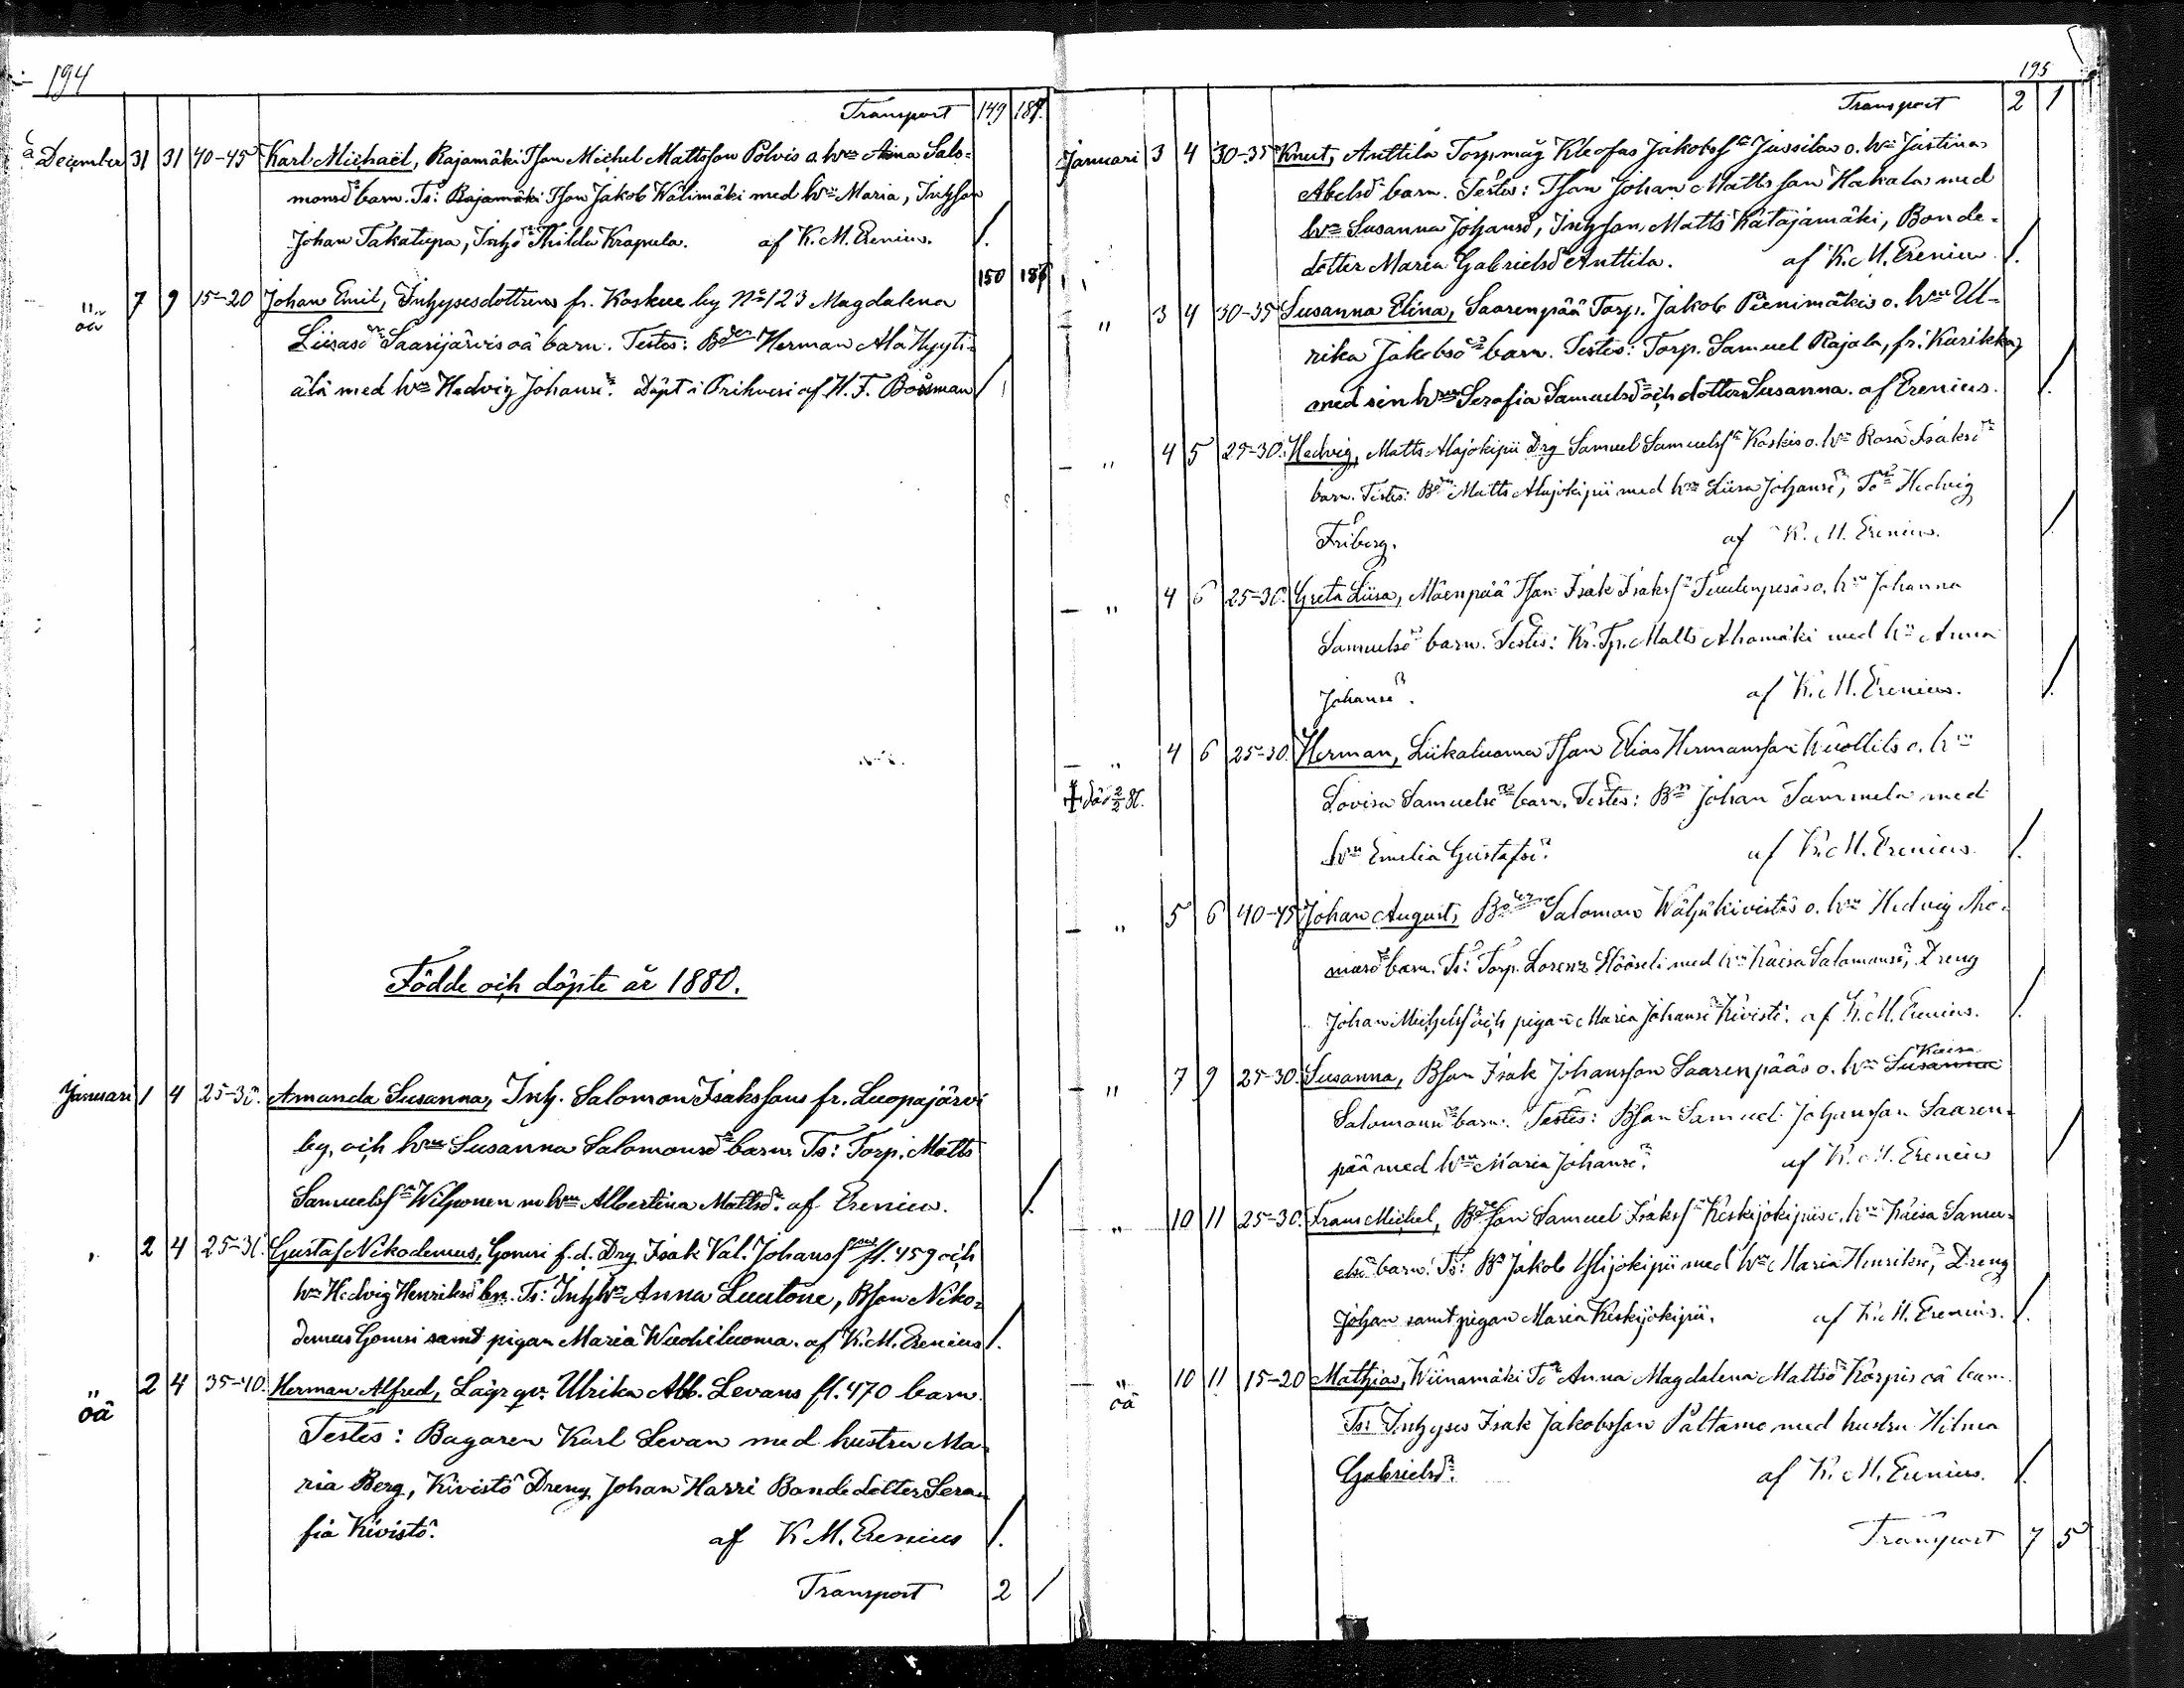 194
Transport 149 187.
December 31 31 40-45 Karl Michaël, Rajamäki Tson Michel Mattsson Polvis o. hu Aina Salo-
monsd barn. Ts: Rajamäki Tson Jakob Wälimäki med hu Maria, Inhysson
Johan Takatupa, Inhd Thilda Krapula. af K. M. Erenius. /.
150 187
" 7 9 15-20 Johan Emil, Inhysesdottrens fr. Koskue by No 123 Magdalena
oä Liisasd Saarijärvis oä barn. Testes: Bden Herman Ala Hyyti-
älä med hu Hedvig Johansd. Döpt i Orihvesi af H. F. Bosman /
Födde och döpte år 1880.
Januari 1 4 25-30. Amanda Susanna, Inh. Salomon Isakssons fr. Luopajärvi
by, och hu Susanna Salomonsd barn. Ts: Torp. Matts
Samuelss Wilponen m hu Albertina Mattsd. af Erenius. /.
" 2 4 25-30. Gustaf Nikodemus, Gomsi f.d. Drg Isak Val. Johanss fl. 459 och
hu Hedvig Henriksd bn. Ts: Inh hu Anna Luutone, Bson Niko-
demus Gomsi samt pigan Maria Wuohiluoma. af K. M. Erenius /.
" 2 4 35-40. Herman Alfred, Lägr qv. Ulrika Abb. Levans fl. 470 barn.
oä Testes: Bagaren Karl Levan med hustru Ma-
ria Berg, Kivistö Dreng Johan Harri Bondedotter Sera-
fia Kivistö. af K M. Erenius /.
Transport 2 /
195
Transport 2 1
Januari 3 4 30-35 Knut, Anttila Torpmåg Kleofas Jakobss Jussilas o. hu Justina
Abelsd barn. Testes: Tson Johan Mattsson Hakala med
hu Susanna Johansd, Inhson Matts Katajamäki, Bonde-
dotter Maria Gabrielsd Anttila. af K. M. Erenius /.
- " 3 4 30-35 Susanna Elina, Saarenpää Torp. Jakob Pienimäkis o. hu Ul-
rika Jakobsd barn. Testes: Torp. Samuel Rajala, fr. Kurikka,
med sin hu Serafia Samuelsd och dotter Susanna. af Erenius. /.
- " 4 5 25-30. Hedvig, Matts Alajokipii Drg Samuel Samuelss Koskis o. hu Rosa Isaksd
barn. Testes: Bdn Matts Alajokipii med hu Liisa Johansd, Td Hedvig
Friberg. af K. M. Erenius. /.
- " 4 6 25-30. Greta Liisa, Mäenpää Tson Isak Isakss Tuulenpesäs o. hu Johanna
Samuelsd barn. Testes: Kr. Tp. Matts Ahamäki med hu Anna
Johansd. af K. M. Erenius. /.
- " 4 6 25-30. Herman, Liikaluoma Tson Elias Hermansson Kuollits o. hu
† död 2/2 81. Lovisa Samuelsd barn. Testes: Bn Johan Tammela med
hu Emelia Gustafsd. af K. M. Erenius. /.
- " 5 6 40-45 Johan August, Bden Salomon Wäljäkivistös o. hu Hedvig Tho-
masd barn. Ts: Torp. Lorenz Hööseli med hu Kaisa Salomonsd, Dreng
Johan Michelss och pigan Maria Johansd Kivistö. af K. M. Erenius. /.
Kaisa
- " 7 9 25-30. Susanna, Bson Isak Johansson Saarenpääs o. hu Susanna
Salomonsd barn. Testes: Bson Samuel Johansson Saaren-
pää med hu Maria Johansd. af K. M. Erenius /.
" 10 11 25-30. Frans Michel, Bdeson Samuel Isakss Keskijokipiis o. hu Kaisa Samu-
elsd barn. Ts: Bn Jakob Ylijokipii med hu Maria Henriksd, Dreng
Johan samt pigan Maria Keskijokipii. af K. M. Erenius. /.
- " 10 11 15-20 Mathias, Wiinamäki Td Anna Magdalena Mattsd Korpis oä barn.
oä Ts: Inhyses Isak Jakobsson Paltamo med hustru Hilma
Gabrielsd. af K. M. Erenius. /.
Transport 7 5